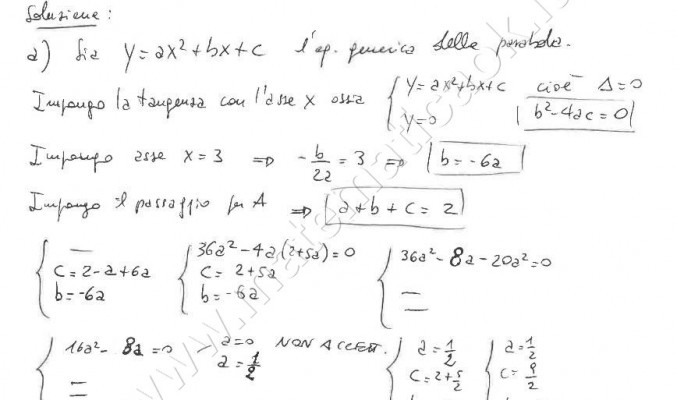 Soluzione:
a) Sia y=ax²+bx+c l'eq. generica della parabola.
Impongo la tangenza con l'asse x ossia { y=ax²+bx+c cioè Δ=0
y=0 |b²-4ac=0|
Impongo asse x=3 => -b/2a=3 => |b=-6a|
Impongo il passaggio per A => |a+b+c=2|
{ — { 36a²-4a(2+5a)=0 { 36a²-8a-20a²=0
c=2-a+6a c=2+5a —
b=-6a b=-6a —
{ 16a²-8a=0 — a=0 NON ACCETT. { a=1/2 { a=1/2
= a=1/2 c=2+5/2 c=9/2
www.matematicaok.